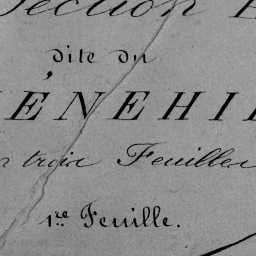 Section
dite du
ÉNEHI
trois Feuilles
1re Feuille.